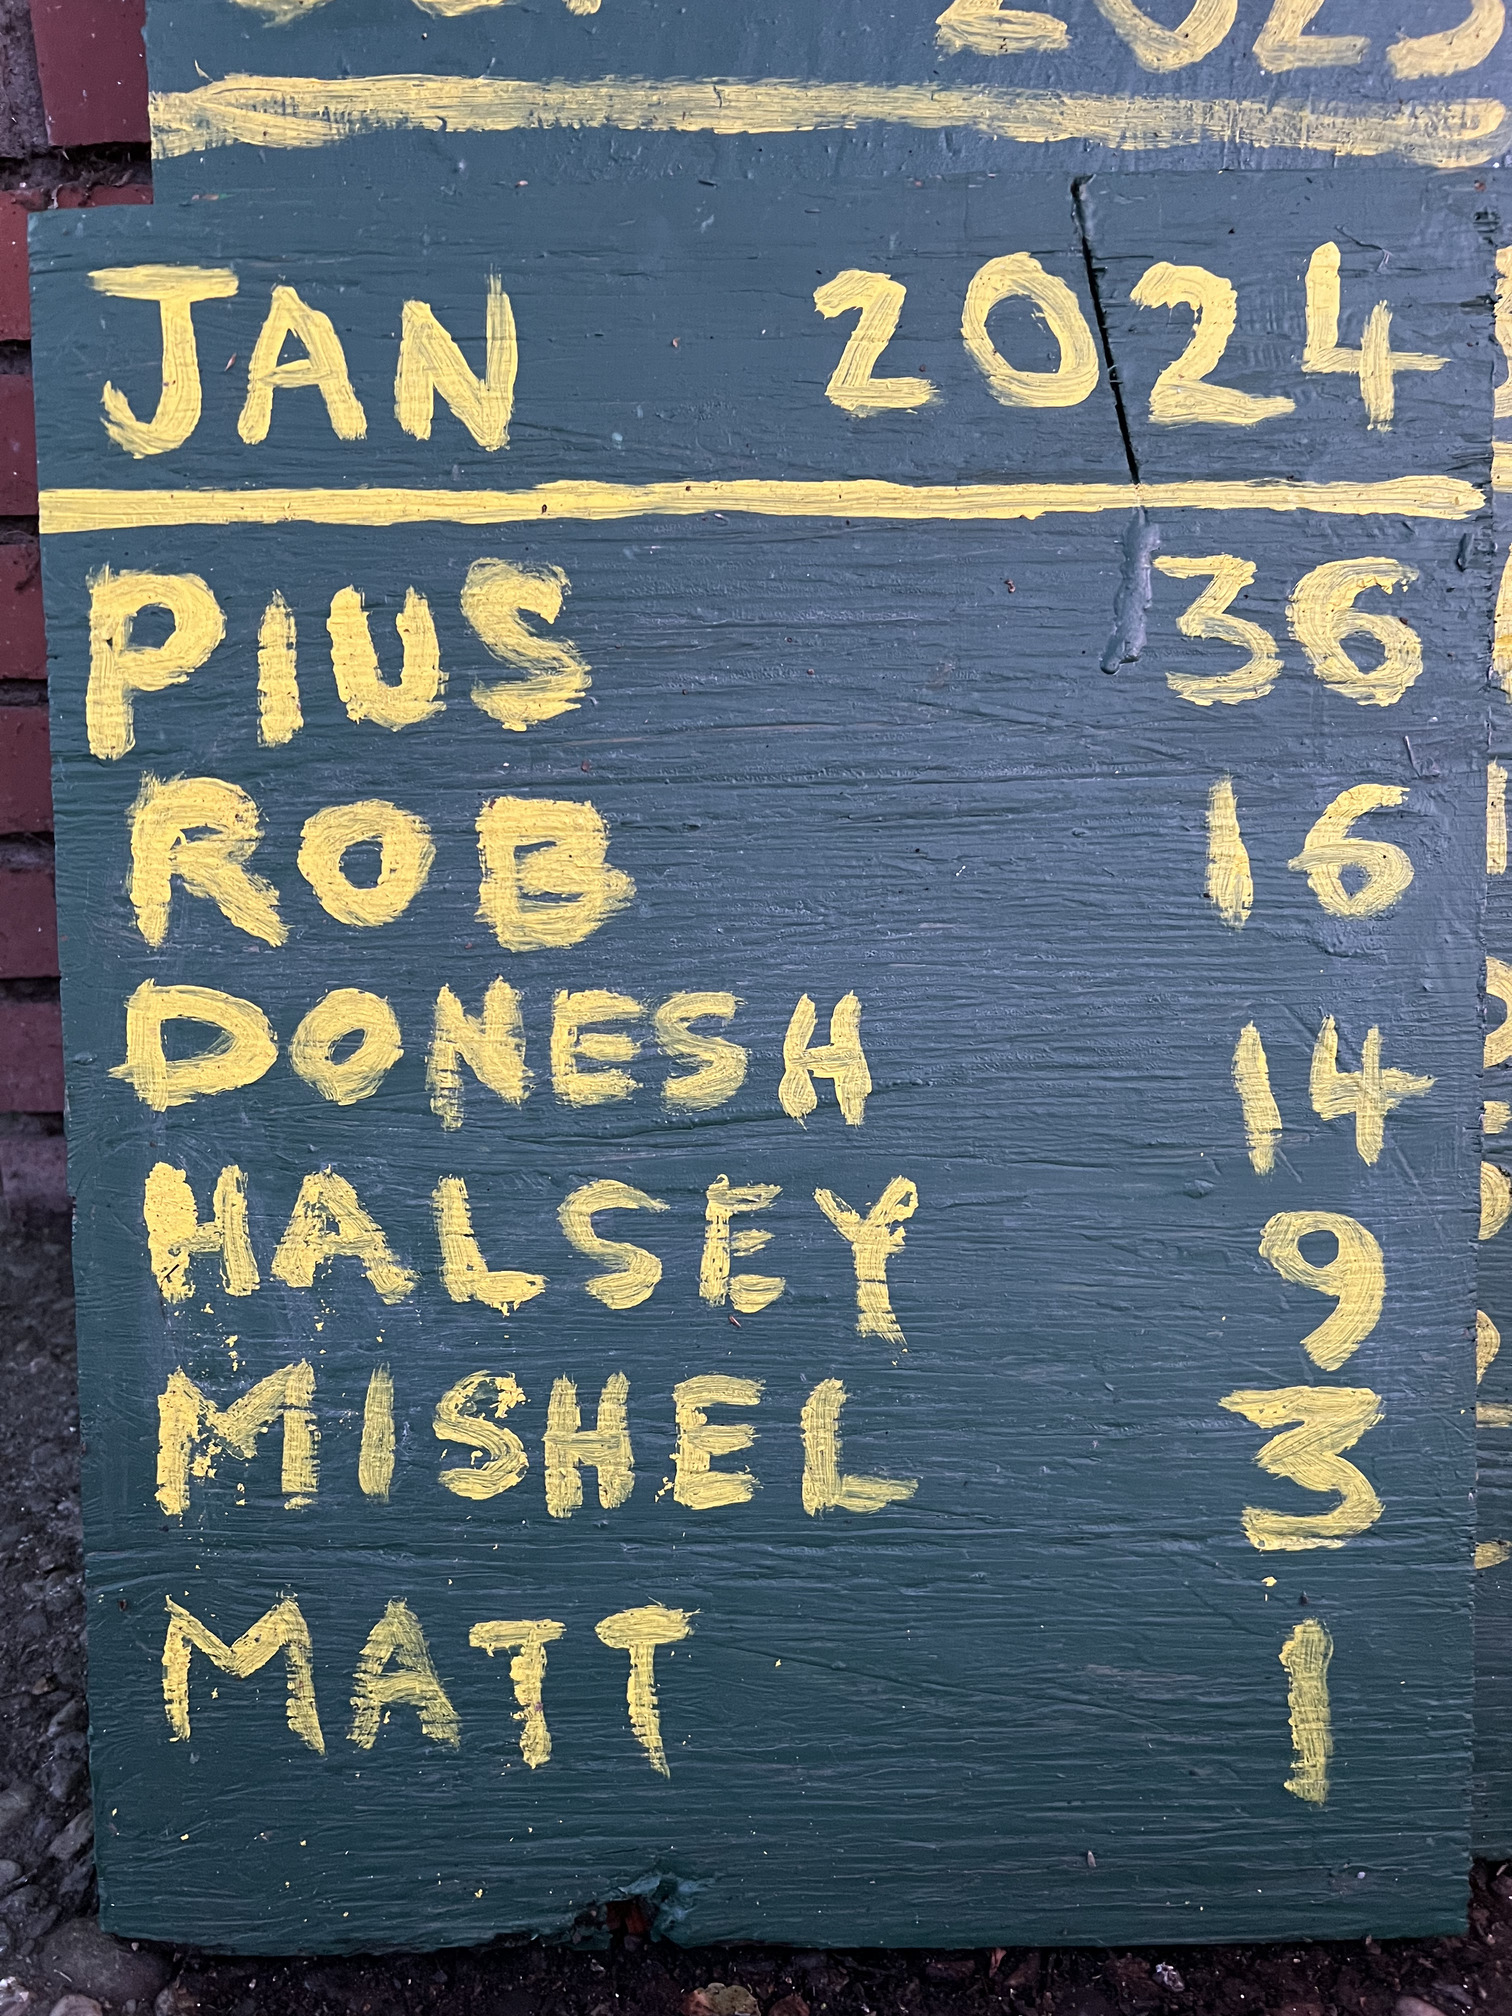 2023
JAN 2024
PIUS 36
ROB 16
DONESH 14
HALSEY 9
MISHEL 3
MATT 1